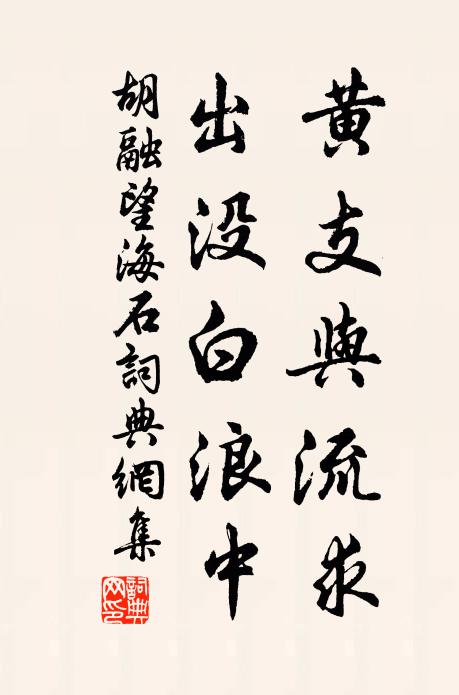 黄支與流求
出没白浪中
胡融望海石詞典網集
詞典
网印